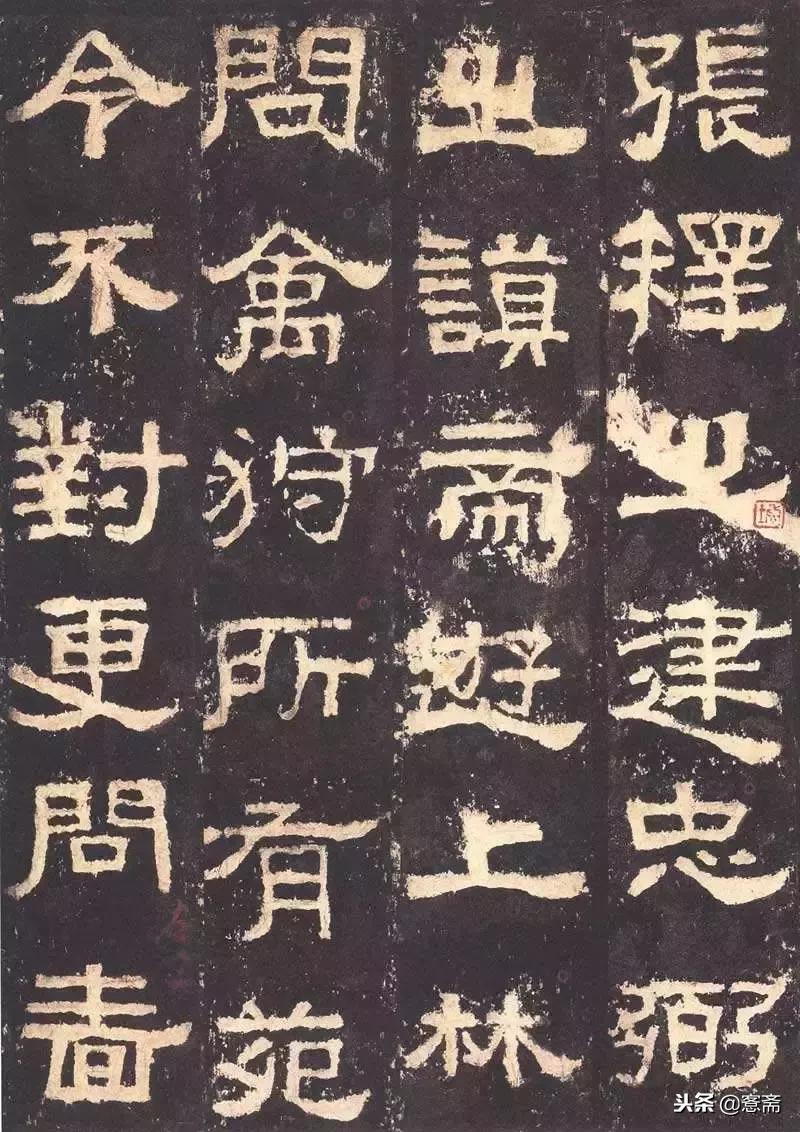 張釋之建忠弼
之謨帝遊上林
問禽狩所有苑
令不對更問嗇
头条 @愙斋